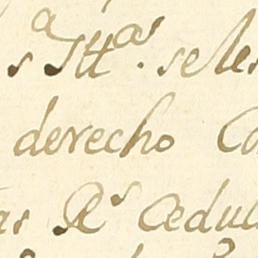 s.ª Ittªˢ. seles
derecho Co
as Rˢ Cedul